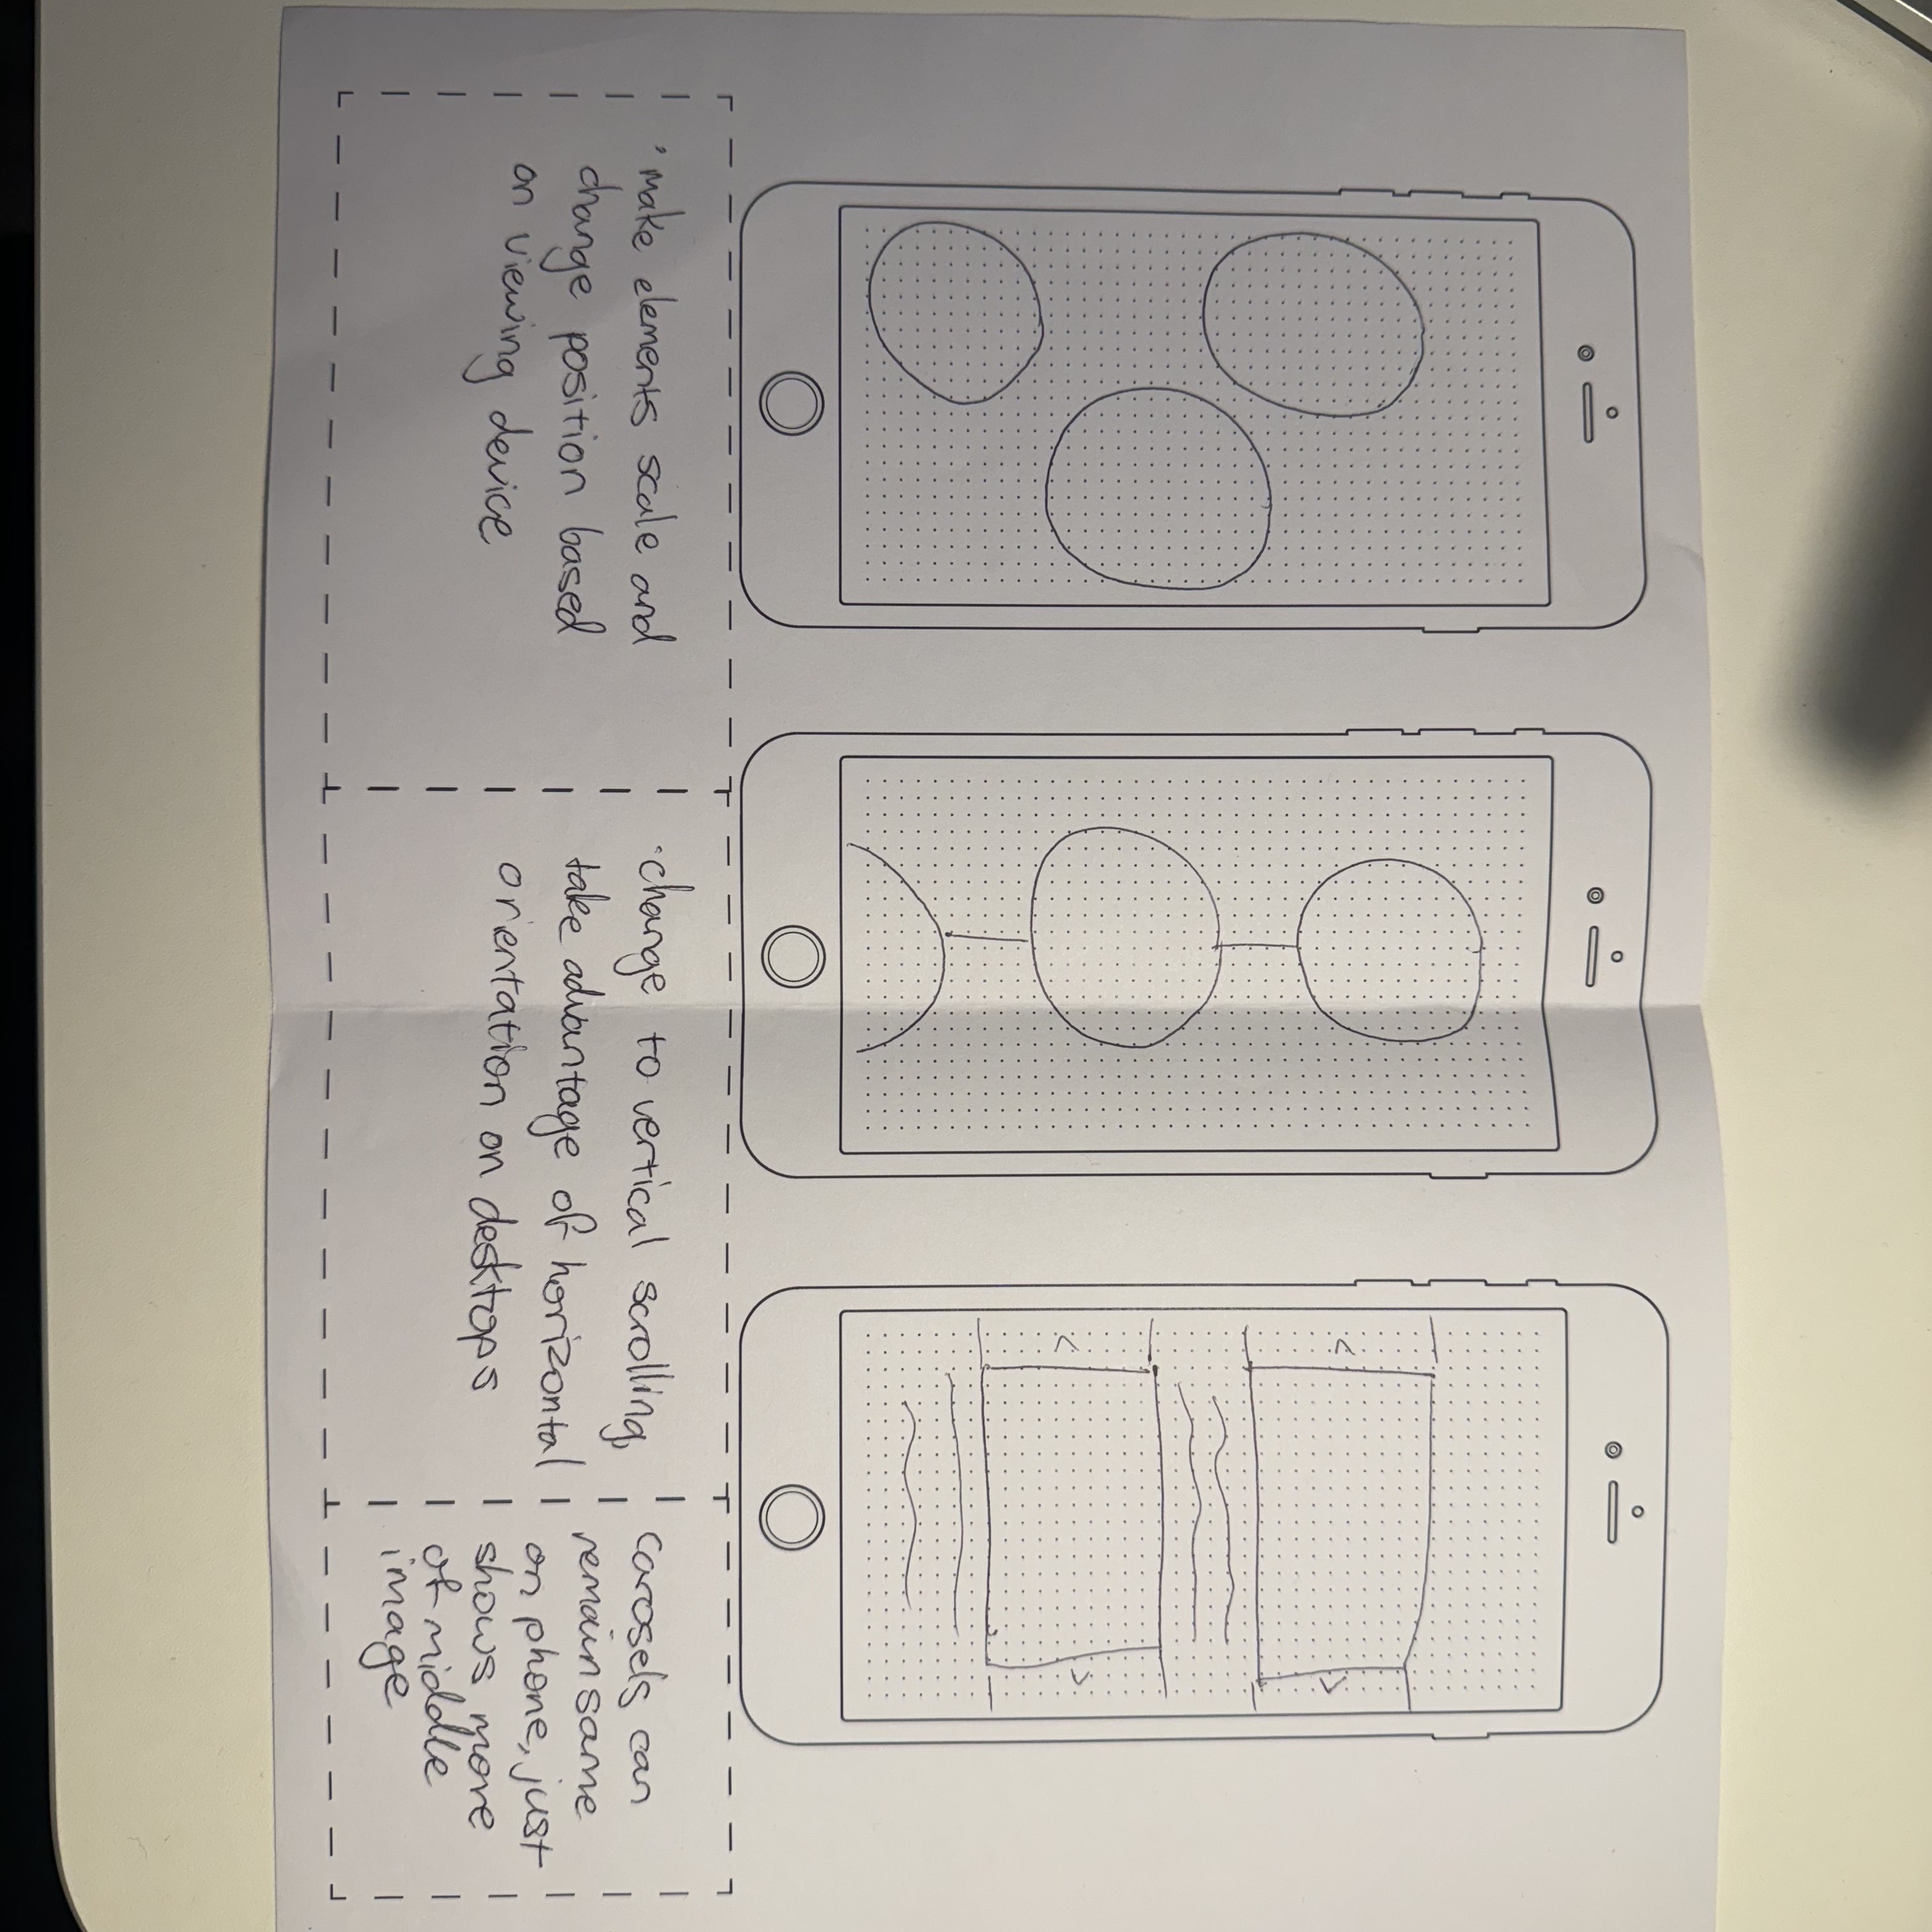 · make elements scale and
change position based
on viewing device
· change to vertical scrolling,
take advantage of horizontal
orientation on desktops
carosels can
remain same
on phone, just
shows more
of middle
image